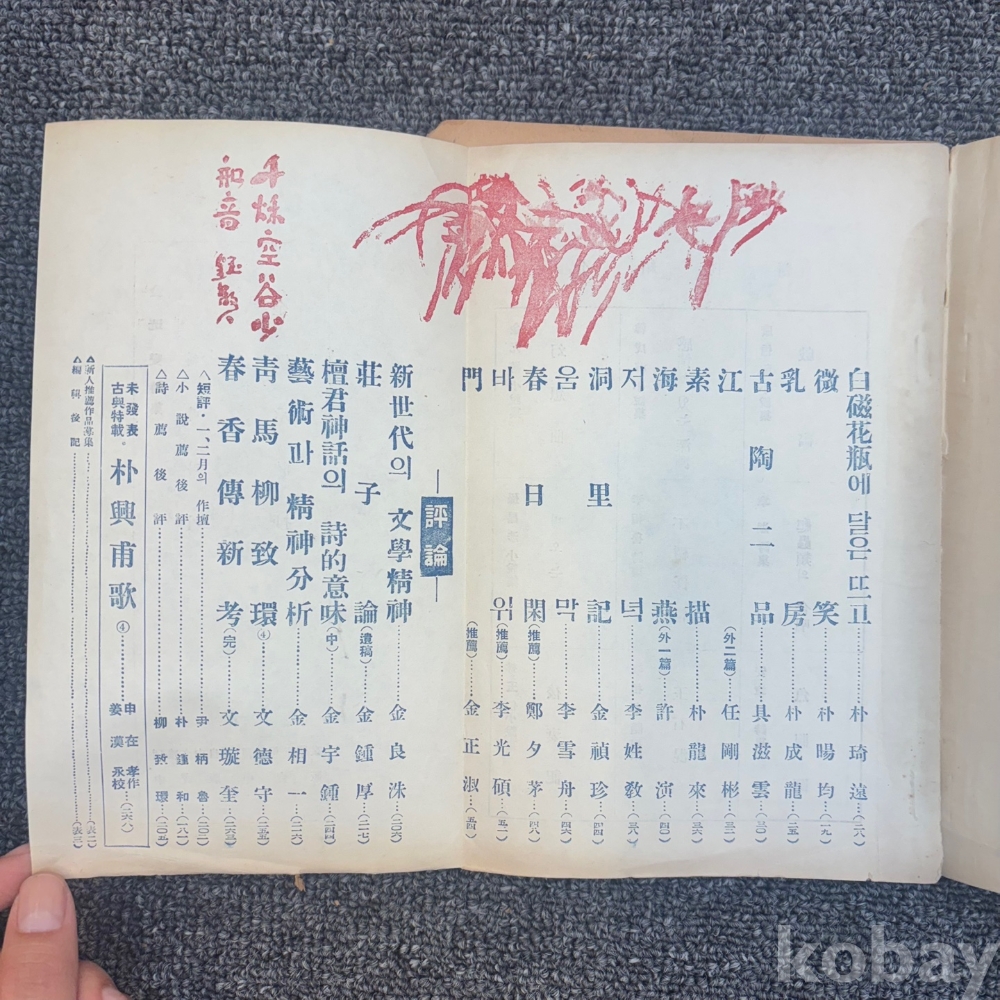 白磁花瓶에 달은 뜨고……朴琦遠…(二八)
微笑……朴暘均…(二九)
乳房……朴成龍…(二五)
古陶二品……具滋雲…(三〇)
江(外二篇)……任剛彬…(三二)
素描……朴龍來…(三六)
海燕(外一篇)……許演…(四〇)
저녁……李姓敎…(三八)
洞里記……金禎珍…(四四)
움막……李雪舟…(四六)
春日閑(推薦)……鄭夕茅…(四八)
바위(推薦)……李光碩…(五一)
門(推薦)……金正淑…(五四)
評論
新世代의 文學精神……金良洙…(二〇六)
莊子論(遺稿)……金鍾厚…(二一七)
檀君神話의 詩的意味(中)……金宇鍾…(二四四)
藝術과 精神分析……金相一…(二二六)
靑馬柳致環④……文德守…(二五五)
春香傳新考(完)……文璇奎…(二六三)
△短評·一、二月의 作壇……尹柄魯…(二〇二)
△小說薦後評……朴蓮和…(二八一)
△詩薦後評……柳致環…(二〇五)
未發表古典特載·朴興甫歌④……申在孝作 姜漢永校…(二六八)
▲新人推薦作品募集……(表二)
△編輯後記……(表三)
千秌空谷
和音
kobay